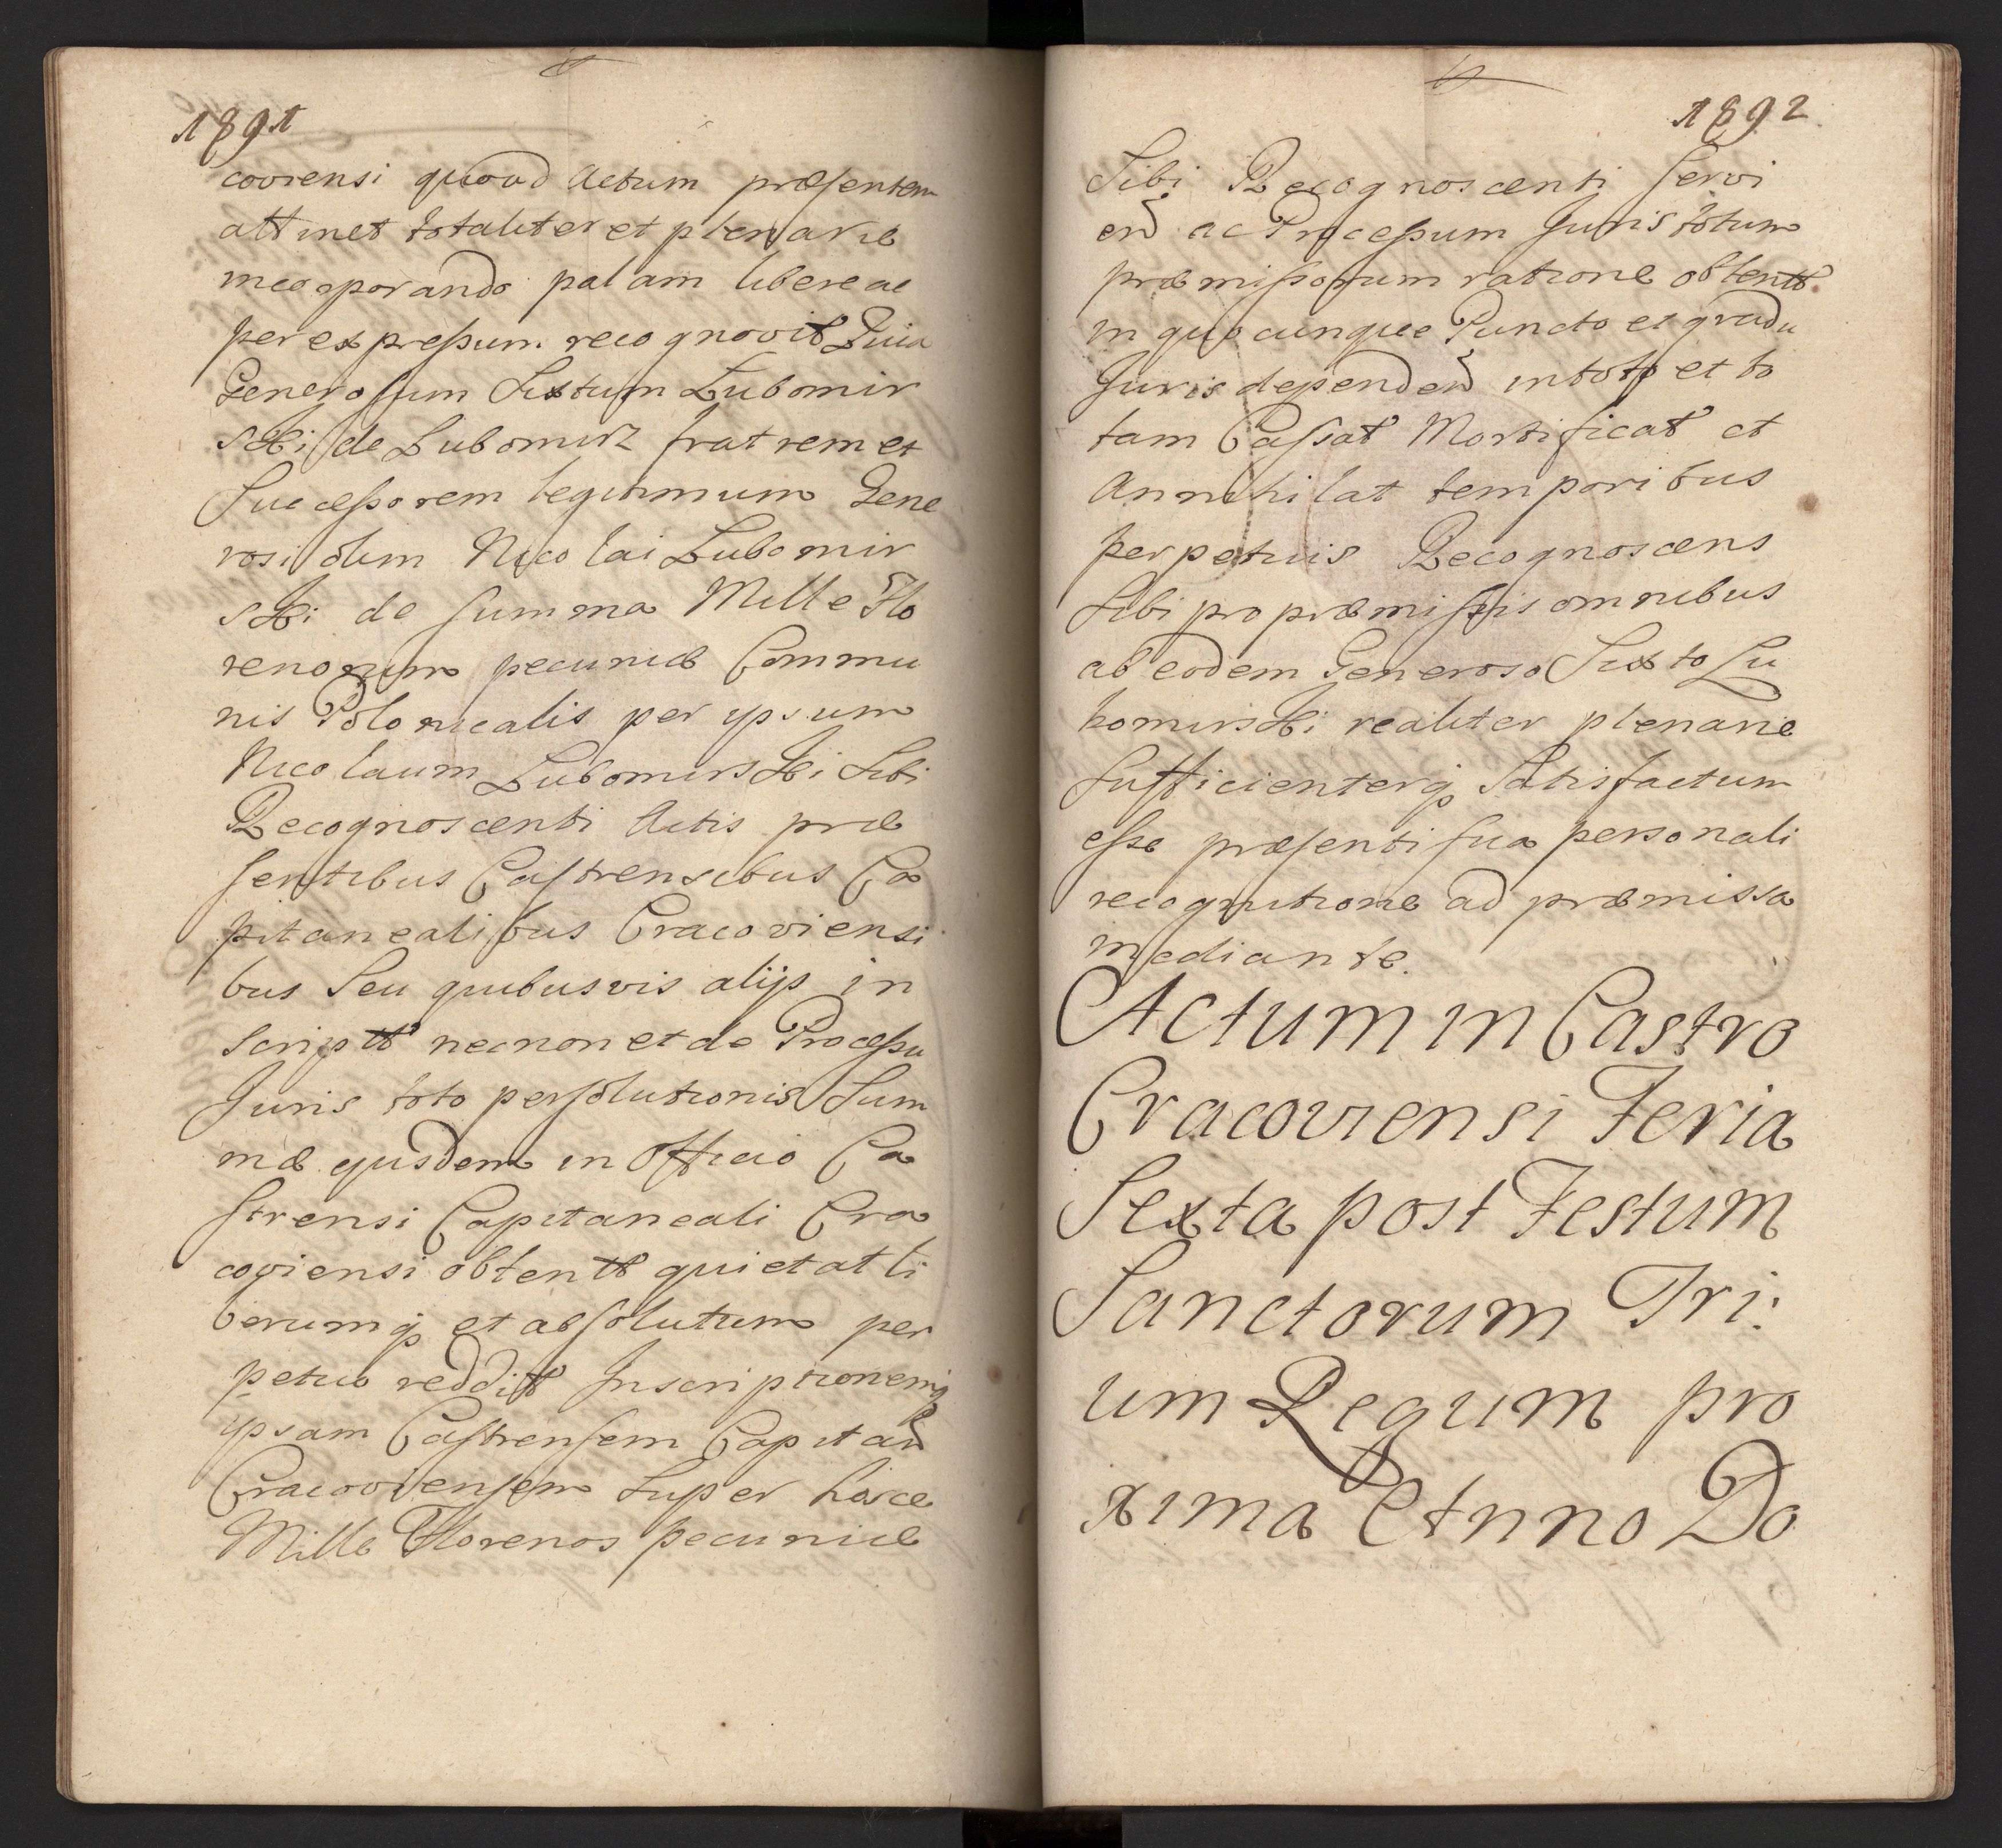 1891
coviensi quoad Actum præsentem
attinet totaliter et plenarie
incorporando palam libere ac
per expressum recognovit Quia
Generosum Sixtum Lubomir
ski de Lubomirz fratrem et
Successorem legitimum Gene
rosi olim Nicolai Lubomir
ski de summa Mille Flo
renorum pecuniæ Commu
nis Polonicalis per ipsum
Nicolaum Lubomirski Sibi
Recognoscenti Actis præ
sentibus Castrensibus Ca
pitanealibus Cracoviensi
bus Seu quibusvis alijs in
scriptt necnon et de Processu
Juris toto persolutionis Sum
mæ ejusdem in Officio Ca
strensi Capitaneali Cra
coviensi obtentt quietat li
berumq et absolutum per
petuo reddit Inscriptionemq
ipsam Castrensem Capitan
Cracoviensem Super hosce
Mille Florenos pecuniæ
1892.
Sibi Recognoscenti servi
en ac Processum Juris totum
præmissorum ratione obtentt
in quocunque Puncto et gradu
Juris dependen in toto et to
tam Cassat Mortificat et
Annihilat temporibus
perpetuis Recognoscens
Sibi pro præmissis omnibus
ab eodem Generoso Sixto Lu
bomirski realiter plenarie
Sufficienterq Satisfactum
esse præsenti sua personali
recognitione ad præmissa
mediante.
Actum in Castro
Cracoviensi Feria
Sexta post Festum
Sanctorum Tri:
um Regum pro
xima Anno Do